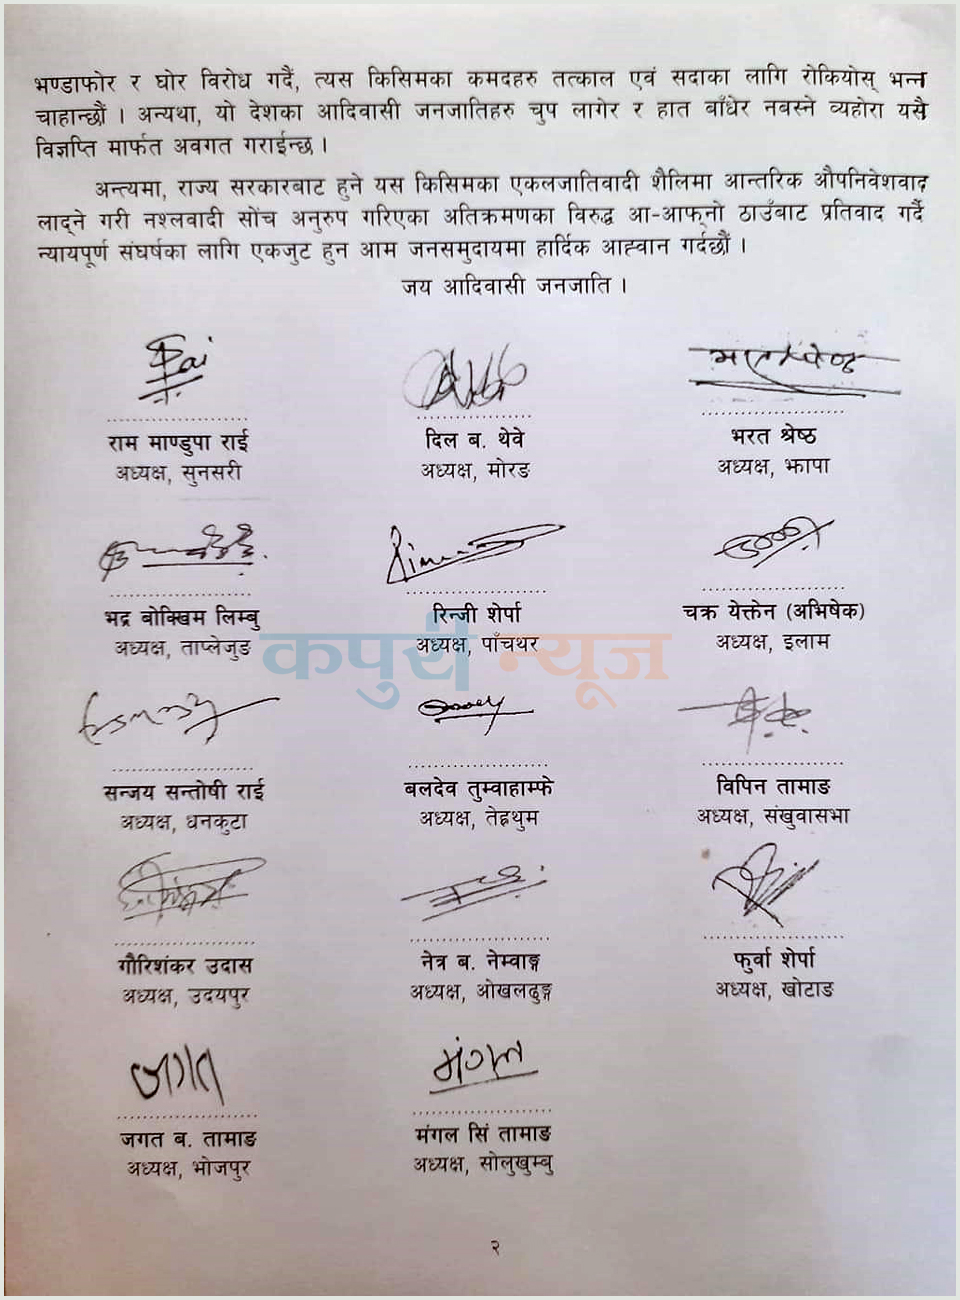 भण्डाफोर र घोर विरोध गर्दै, त्यस किसिमका कमदहरु तत्काल एवं सदाका लागि रोकियोस् भन्न
चाहान्छौं । अन्यथा, यो देशका आदिवासी जनजातिहरु चुप लागेर र हात बाँधेर नबस्ने व्यहोरा यसै
विज्ञप्ति मार्फत अवगत गराईन्छ ।
अन्त्यमा, राज्य सरकारबाट हुने यस किसिमका एकलजातिवादी शैलिमा आन्तरिक औपनिवेशवाद
लाद्ने गरी नश्लवादी सोंच अनुरुप गरिएका अतिक्रमणका विरुद्ध आ-आफ्नो ठाउँबाट प्रतिवाद गर्दै
न्यायपूर्ण संघर्षका लागि एकजुट हुन आम जनसमुदायमा हार्दिक आह्वान गर्दछौं ।
जय आदिवासी जनजाति ।
Rai
राम माण्डुपा राई
अध्यक्ष, सुनसरी
दिल ब. थेवे
अध्यक्ष, मोरङ
भरत श्रेष्ठ
अध्यक्ष, झापा
भद्र बोक्खिम लिम्बु
अध्यक्ष, ताप्लेजुङ
रिन्जी शेर्पा
अध्यक्ष, पाँचथर
चक्र येक्तेन (अभिषेक)
अध्यक्ष, इलाम
कपुरी न्यूज
सन्जय सन्तोषी राई
अध्यक्ष, धनकुटा
बलदेव तुम्वाहाम्फे
अध्यक्ष, तेह्रथुम
विपिन तामाङ
अध्यक्ष, संखुवासभा
गौरिशंकर उदास
अध्यक्ष, उदयपुर
नेत्र ब. नेम्वाङ्ग
अध्यक्ष, ओखलढुङ्ग
फुर्वा शेर्पा
अध्यक्ष, खोटाङ
जगत
जगत ब. तामाङ
अध्यक्ष, भोजपुर
मंगल
मंगल सिं तामाङ
अध्यक्ष, सोलुखुम्बु
२